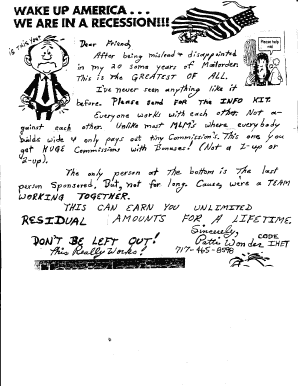 WAKE UP AMERICA . . .
WE ARE IN A RECESSION!!!
IS THIS YOU?
Please help me!
Dear Friend,
After being mislead & disappointed
in my 20 some years of Mailorder.
This is the GREATEST OF ALL.
I've never seen anything like it
before. Please send FOR THE INFO KIT.
Everyone works with each other. Not a-
gainst each other. Unlike most MLM's where everybody
builds wide & only pays out tiny Commission's. This one you
get HUGE Commissions with Bonuses! (Not a 1-up or
2-up).
The only person at the bottom is the last
person Sponsored. But, not for long. Cause, were a TEAM
WORKING TOGETHER.
THIS CAN EARN YOU UNLIMITED
RESIDUAL AMOUNTS FOR A LIFETIME.
Sincerely,
DON'T BE LEFT OUT! Patti Wonder CODE IHET
This Really Works! 717-465-8598